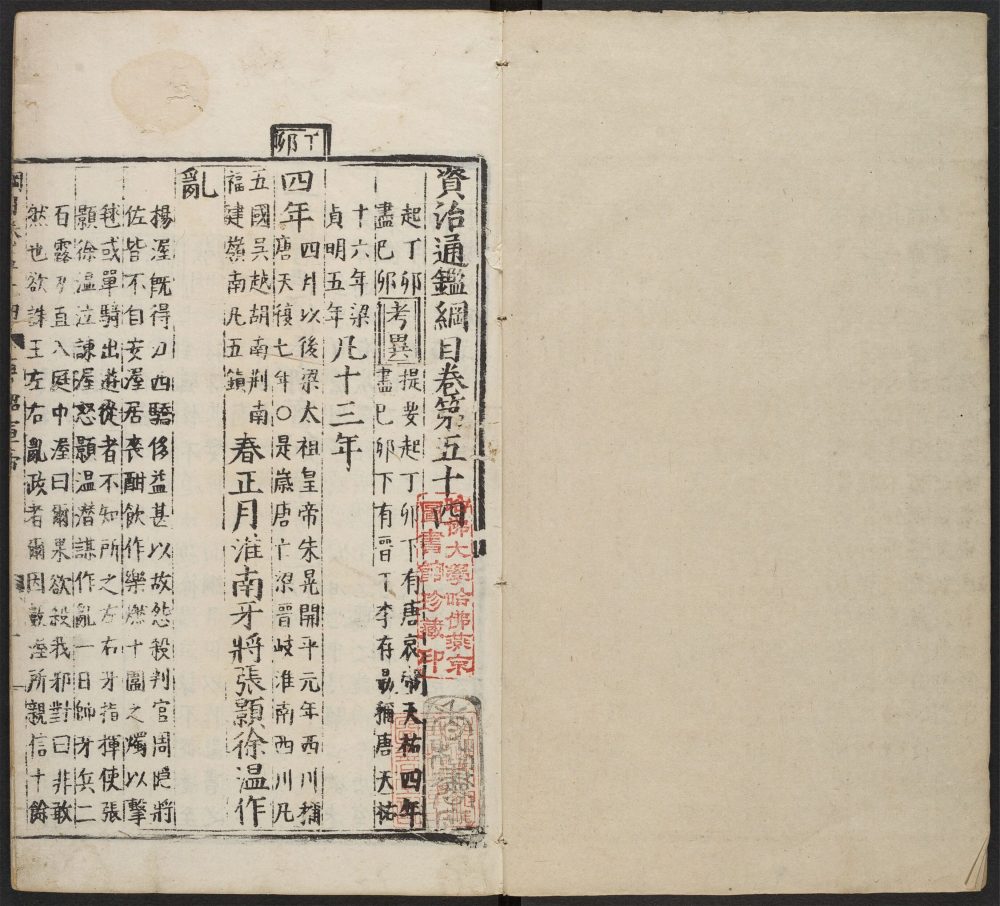 資治通鑑綱目卷第五十四
起丁卯
盡己卯
考異
提要起丁卯下有唐哀帝天祐四年
盡己卯下有晉王李存勗稱唐天祐
十六年梁
貞明五年
凡十三年
丁卯
四年
四月以後梁太祖皇帝朱晃開平元年西川稱
唐天復七年〇是歲唐亡梁晉岐淮南西川凡
五國吳越湖南荆南
福建嶺南凡五鎮
春正月淮南牙將張顥徐温作
亂
楊渥既得江西驕侈益甚以故怨殺判官周隱將
佐皆不自安渥居喪酣飲作樂燃十圍之燭以擊
毬或單騎出遊從者不知所之左右牙指揮使張
顥徐温泣諫渥怒顥温潜謀作亂一日帥牙兵二
百露刃直入庭中渥曰爾果欲殺我邪對曰非敢
然也欲誅王左右亂政者爾因數渥所親信十餘
哈佛大學哈佛燕京
圖書館珍藏印